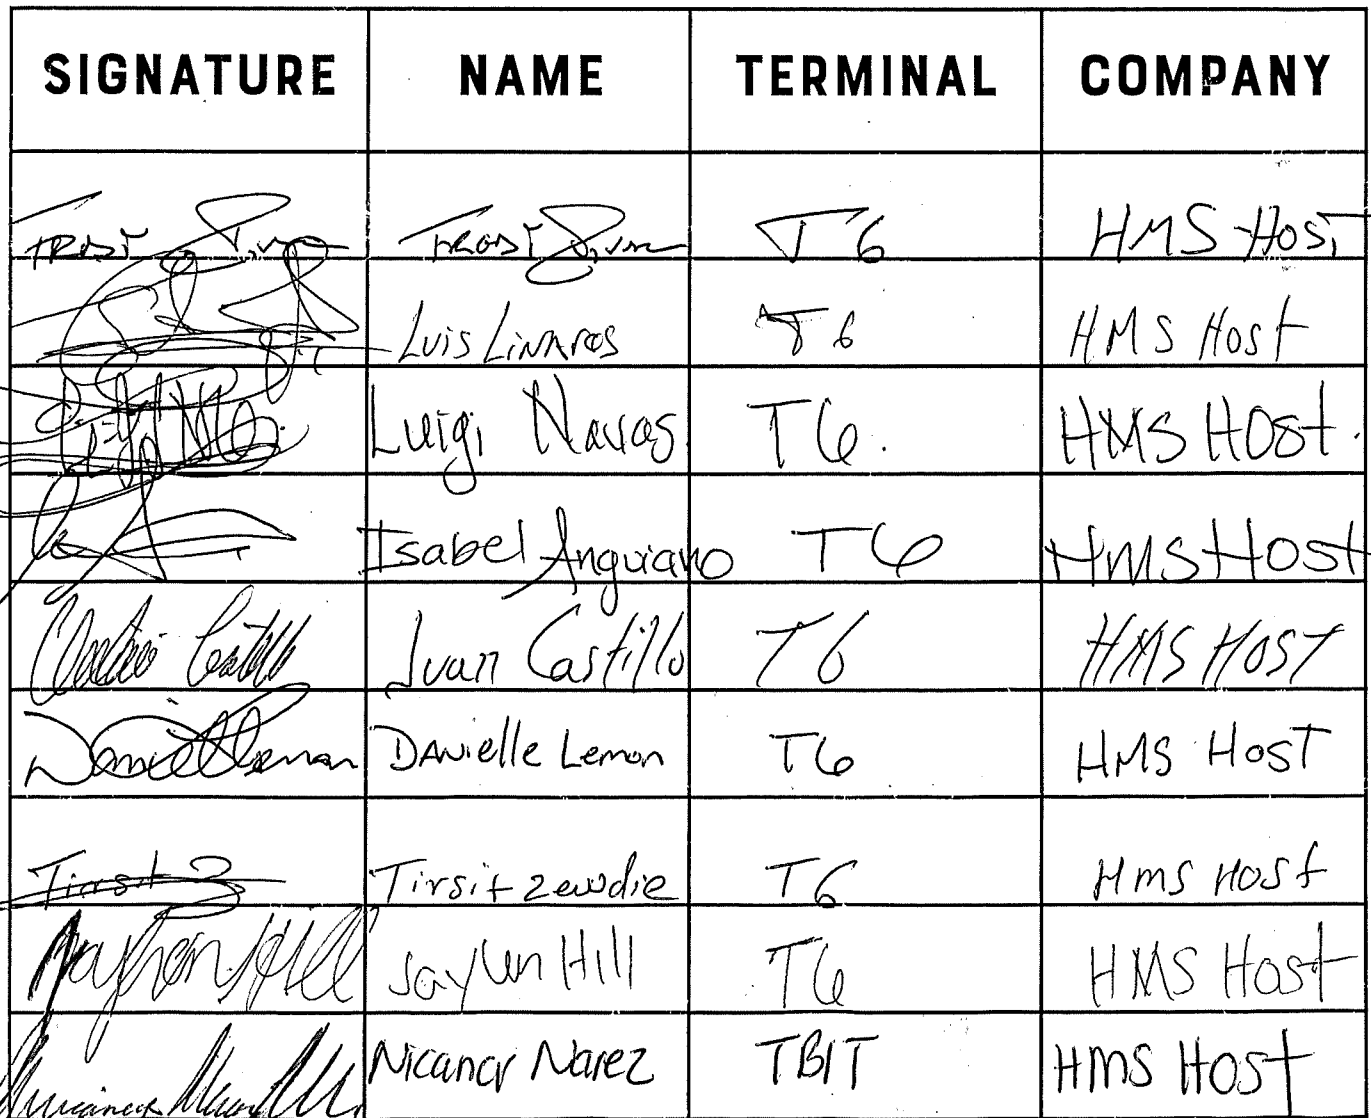 SIGNATURE NAME TERMINAL COMPANY
T6 HMS Host
Luis Linares T6 HMS Host
Luigi Navas T6. HMS HOst.
Isabel Anguiano T6 HMS Host
Castillo Juan Castillo T6 HMS HOST
Danielle Lemon T6 HMS HOST
Tirsit Z Tirsit zewdie T6 Hms Host
Hill Jaylun Hill T6 HMS Host
Nicanor Narez TBIT HMS Host